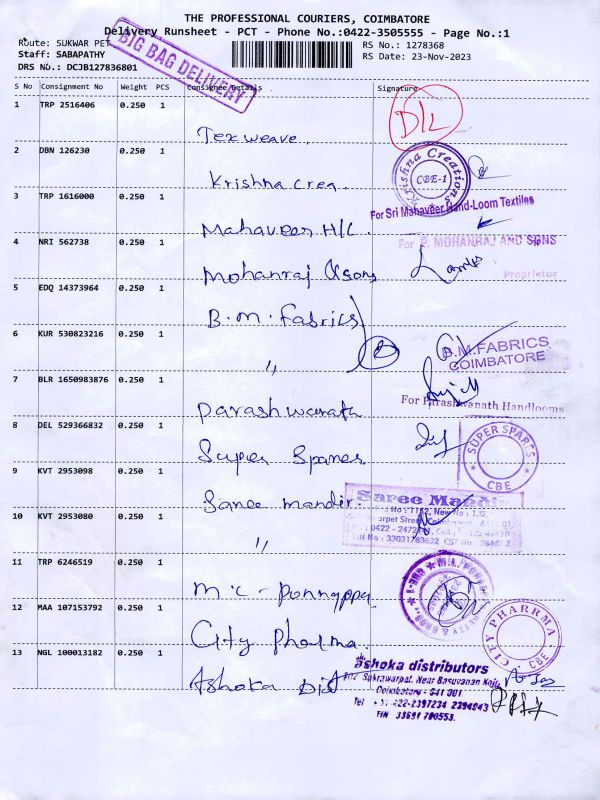 THE PROFESSIONAL COURIERS, COIMBATORE
Delivery Runsheet - PCT - Phone No.:0422-3505555 - Page No.:1
Route: SUKWAR PET RS No.: 1278368
Staff: SABAPATHY RS Date: 23-Nov-2023
DRS No.: DCJB127836801
BIG BAG DELIVERY
S No Consignment No Weight PCS Consignee Details Signature
1 TRP 2516406 0.250 1
Tex weave D/L
2 DBN 126230 0.250 1
Krishna Crea Krishna Creations CBE-1
3 TRP 1616000 0.250 1
For Sri Mahaveer Hand-Loom Textiles
Mahaveer H/L
4 NRI 562738 0.250 1 For P. MOHANRAJ AND SONS
Mohanraj &sons Proprietor
5 EDQ 14373964 0.250 1
B.M. Fabrics
6 KUR 530823216 0.250 1
B.M.FABRICS
COIMBATORE
〃
7 BLR 1650983876 0.250 1
For Parashwanath Handlooms
Parashwanath
8 DEL 529366832 0.250 1
Super Spares SUPER SPARES CBE
9 KVT 2953098 0.250 1
Saree mandir Saree Mandir
10 KVT 2953080 0.250 1
〃
11 TRP 6246519 0.250 1
M.C - Ponnappa
12 MAA 107153792 0.250 1
City Pharma CITY PHARRMA CBE
13 NGL 100013182 0.250 1
Ashoka Dist ashoka distributors
Sukrawarpet, Near Basuvanan Koil,
Coimbatore - 641 001
Tel : 0422-2397234 2394943
TIN 33691 700553.